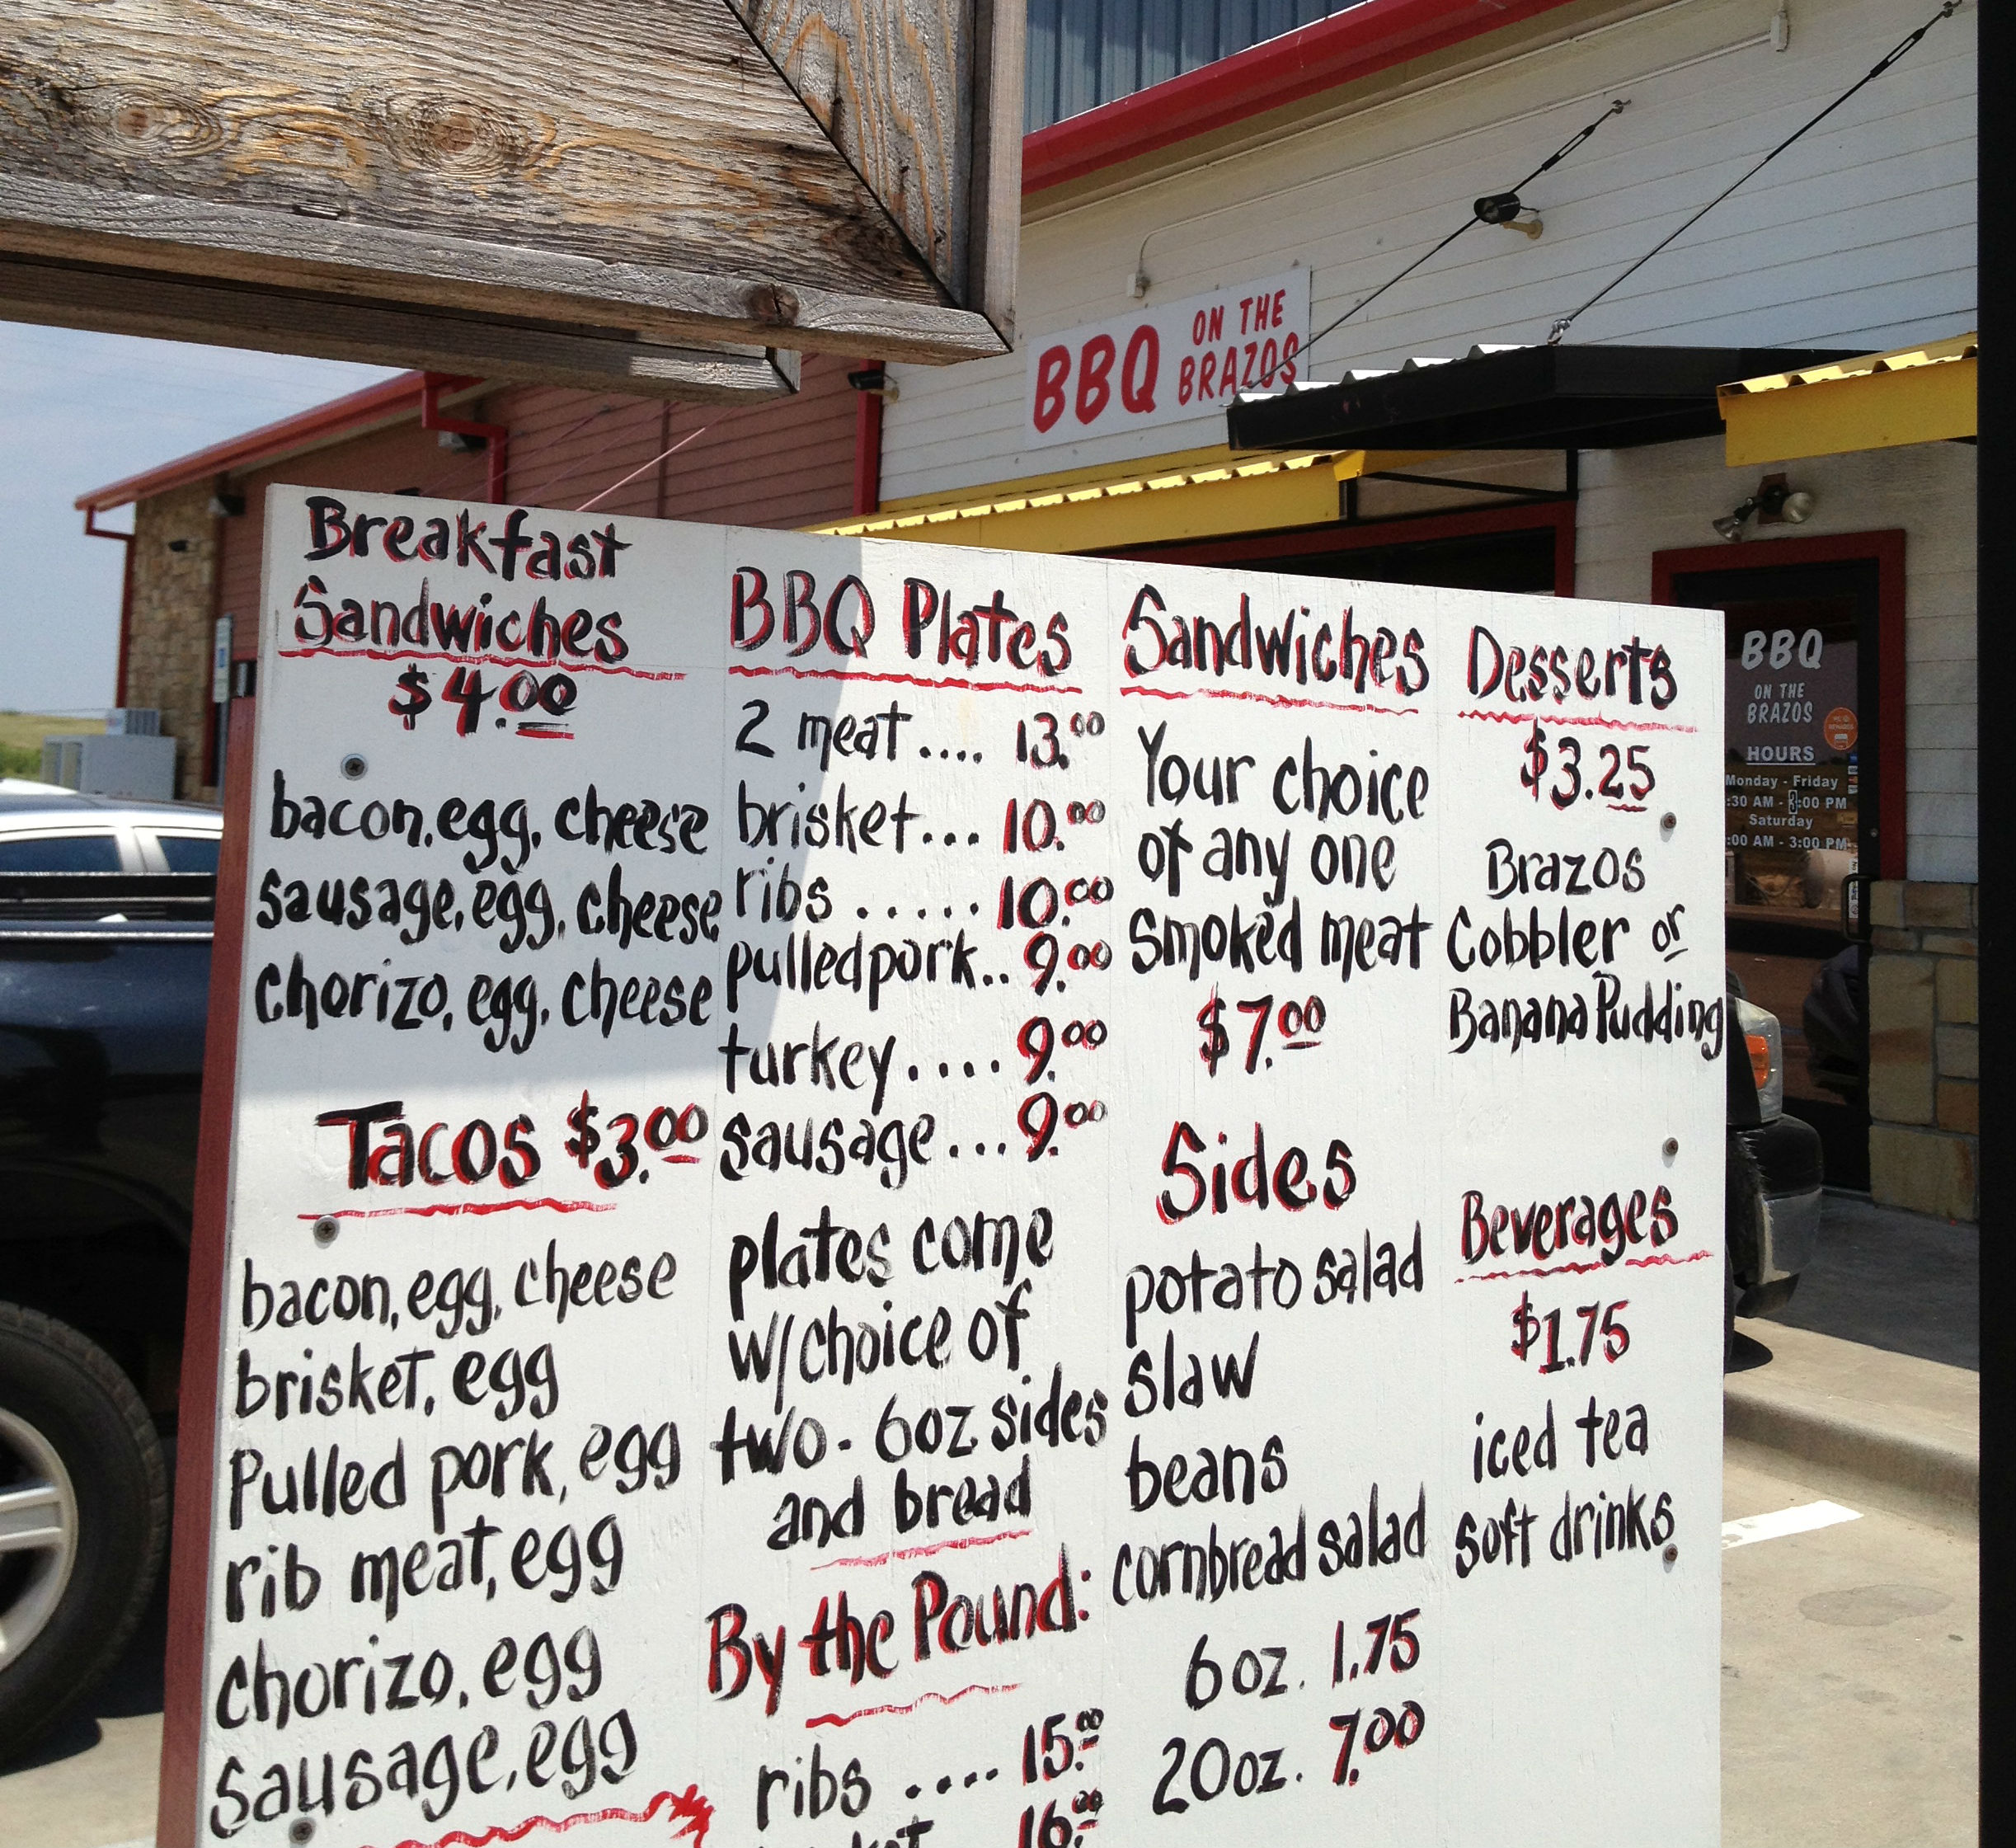 BBQ ON THE
BRAZOS
Breakfast
Sandwiches
$4.00
bacon, egg, cheese
sausage, egg, cheese
chorizo, egg, cheese
Tacos $3.00
bacon, egg, cheese
brisket, egg
Pulled pork, egg
rib meat, egg
chorizo, egg
sausage, egg
BBQ Plates
2 meat.... 13.00
brisket... 10.00
ribs ..... 10.00
pulled pork.. 9.00
turkey.... 9.00
sausage... 9.00
plates come
w/choice of
two - 6oz sides
and bread
By the Pound:
ribs .... 15.00
16.00
Sandwiches
Your choice
of any one
smoked meat
$7.00
Sides
potato salad
slaw
beans
cornbread salad
6 oz. 1.75
20oz. 7.00
Desserts
$3.25
Brazos
Cobbler or
Banana Pudding
Beverages
$1.75
iced tea
soft drinks
BBQ
ON THE
BRAZOS
HOURS
Monday - Friday
:30 AM - 3:00 PM
Saturday
:00 AM - 3:00 PM